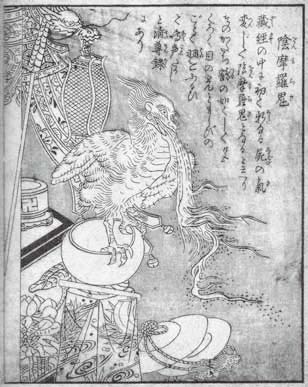 陰摩羅鬼
蔵経の中に初て新なる屍の氣
変じて陰摩羅鬼となると云へり
そのかたち鶴の如くして色
くろく目の光ともしびの
ごとく羽をふるひ
て鳴声たかし
と清尊録
にあり